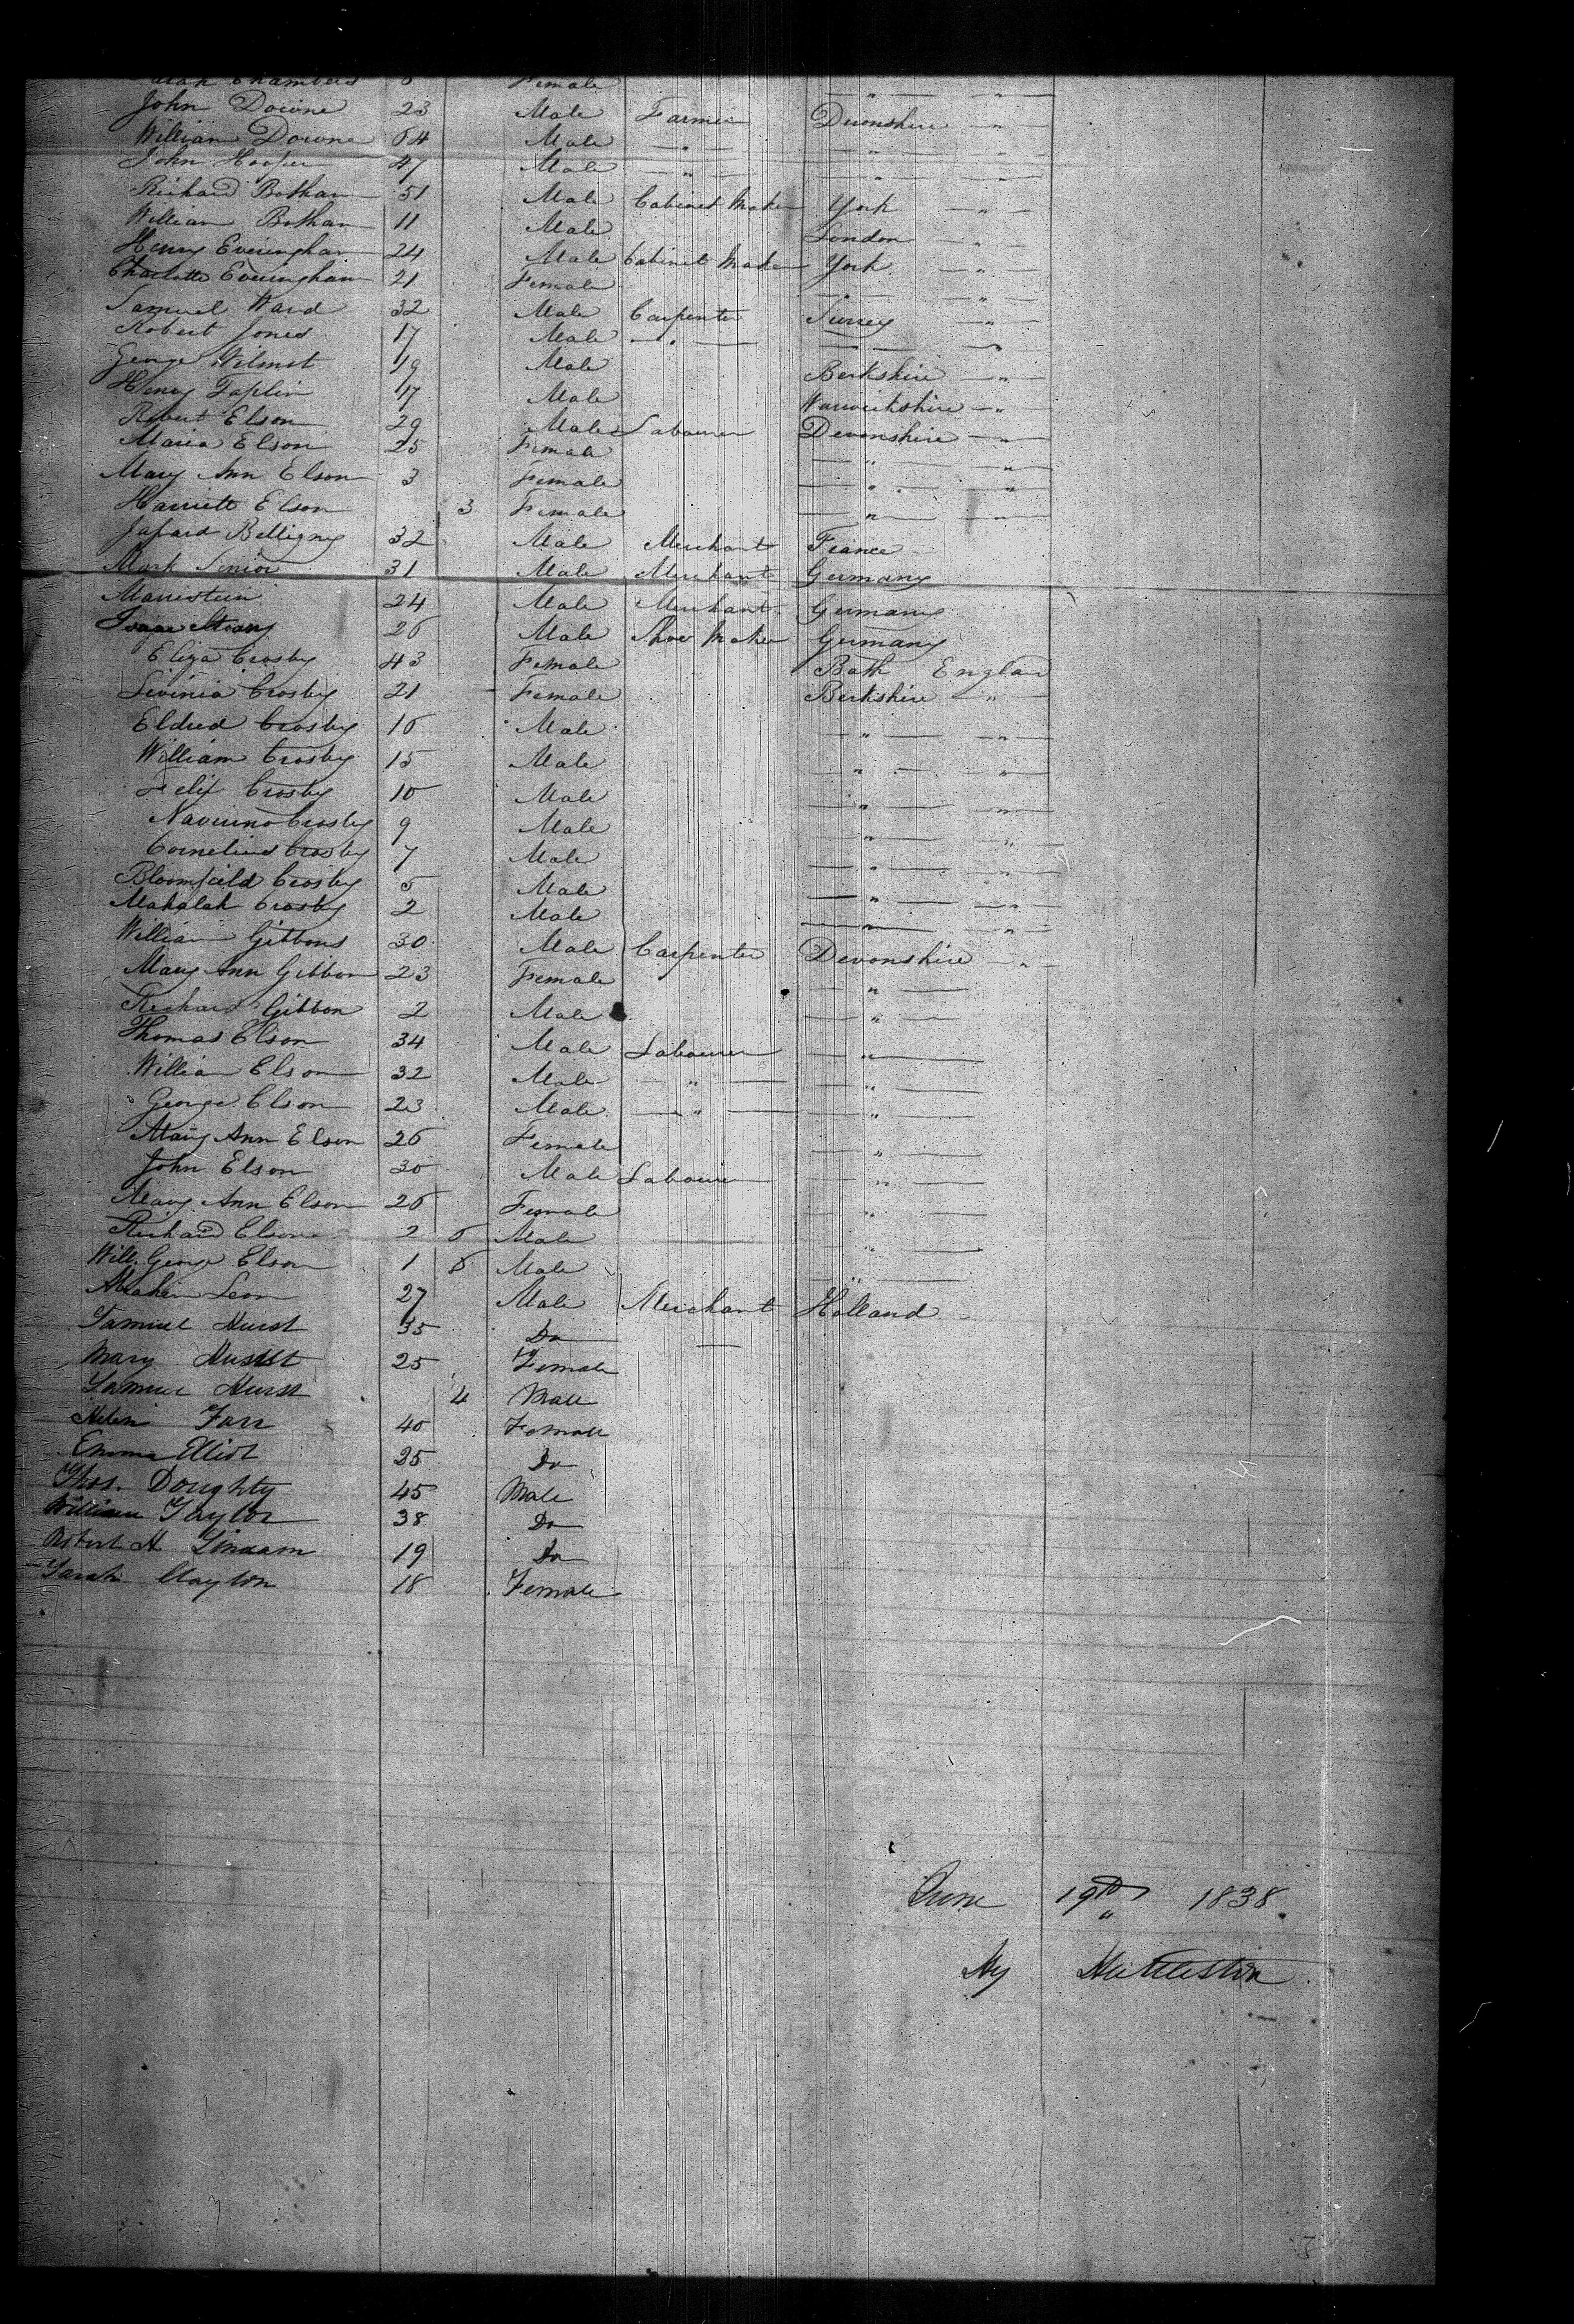 Chambers Female — " — "
John Downe 23 Male Farmer Devonshire — " —
William Downe 64 Male — " — — " — " —
John Hooper 47 Male — " — — " — " —
Richard Botham 51 Male Cabinet Maker York — " —
William Botham 11 Male London "
Henry Everingham 24 Male Cabinet Maker York — " —
Charlotte Everingham 21 Female — " — " —
Samuel Ward 32 Male Carpenter Surrey — " —
Robert Jones 17 Male — " — — " — " —
George Wilmot 19 Male Berkshire — " —
Henry Taplin 17 Male Warwickshire — " —
Robert Elson 29 Male Labourer Devonshire — " —
Maria Elson 25 Female — " — " —
Mary Ann Elson 3 Female — " — " —
Harriett Elson 3 Female — " — " —
Belligny 32 Male Merchant France
Mark Senior 31 Male Merchant Germany
24 Male Merchant Germany
26 Male Shoe Maker Germany
Eliza Crosby 43 Female Bath England
Levinia Crosby 21 Female Berkshire "
Eldred Crosby 16 Male — " — " —
William Crosby 15 Male — " — " —
Felix Crosby 10 Male — " — " —
Navarino Crosby 9 Male — " — " —
Cornelius Crosby 7 Male — " — " —
Bloomfield Crosby 5 Male — " — " —
Mahalah Crosby 2 Male — " — " —
William Gibbons 30 Male Carpenter Devonshire — " —
Mary Ann Gibbon 23 Female — " —
Richard Gibbon 2 Male — " —
Thomas Elson 34 Male Labourer — " —
William Elson 32 Male — " — — " —
George Elson 23 Male — " — — " —
Mary Ann Elson 26 Female — " —
John Elson 30 Male Labourer — " —
Mary Ann Elson 26 Female — " —
Richard Elson 2 6 Male — " —
Will. George Elson 1 6 Male — " —
Abraham Leon 27 Male Merchant Holland
Samuel Hurst 35 Do —
Mary Hurst 25 Female
Samuel Hurst 4 Male
Helen Farr 40 Female
Emma Eliot 25 Do
Thos. Doughty 45 Male
William Taylor 38 Do
Robert H 19 Do
Sarah Clayton 18 Female
June 19th 1838
Hy Huttleston